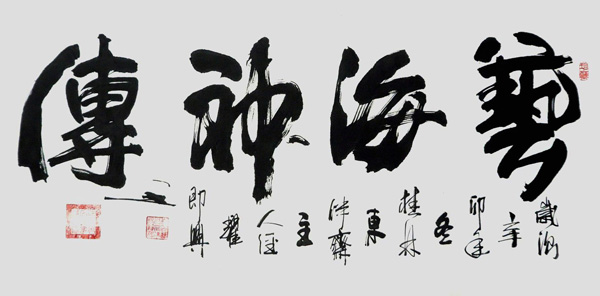 藝海神傳
歲辛卯年冬桂林東齋主人即興